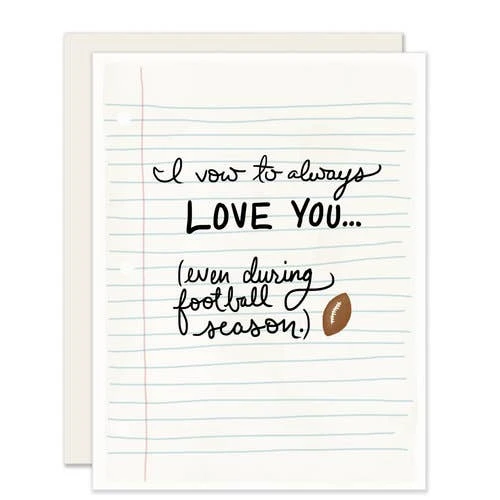 I vow to always
LOVE YOU...
(even during
football
season.)